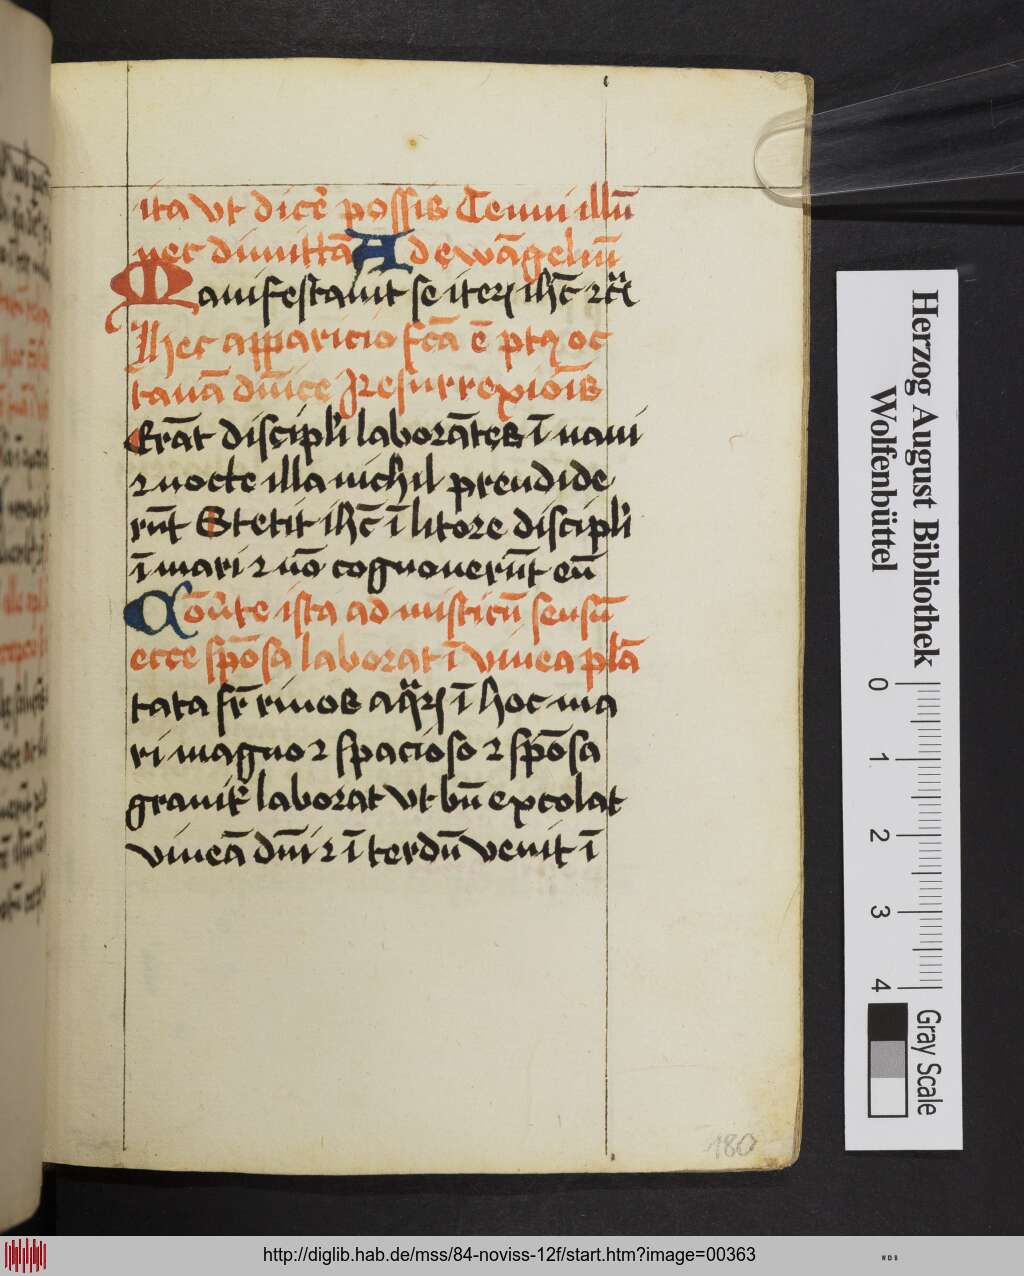 ita vt dicē possis Tenui illū
nec dimittā Ad ewāgeliū
Manifestauit se iteꝝ ihc̄ ⁊cͣ
Hec apparicio fcā ē pꝰtqꝫ oc
tauā dn̄ice Resurrexiōis
Erāt discipl̓i laborātes ī naui
⁊ nocte illa nichil prendide
rūt Stetit ihc̄ ī litore discipl̓i
ī mari ⁊ nō cognouerūt eū
Qōūte ista ad misticū sensū
ecce spōsa laborat ī vinea plā
tata sr̄ riuos aqͣꝝ ī hoc ma
ri magno ⁊ spacioso ⁊ spōsa
grauit̓ laborat vt bn̄ excolat
vineā dn̄i ⁊ īterdū venit ī
180
Herzog August Bibliothek
Wolfenbüttel
0 1 2 3 4
Gray Scale
http://diglib.hab.de/mss/84-noviss-12f/start.htm?image=00363
WDB